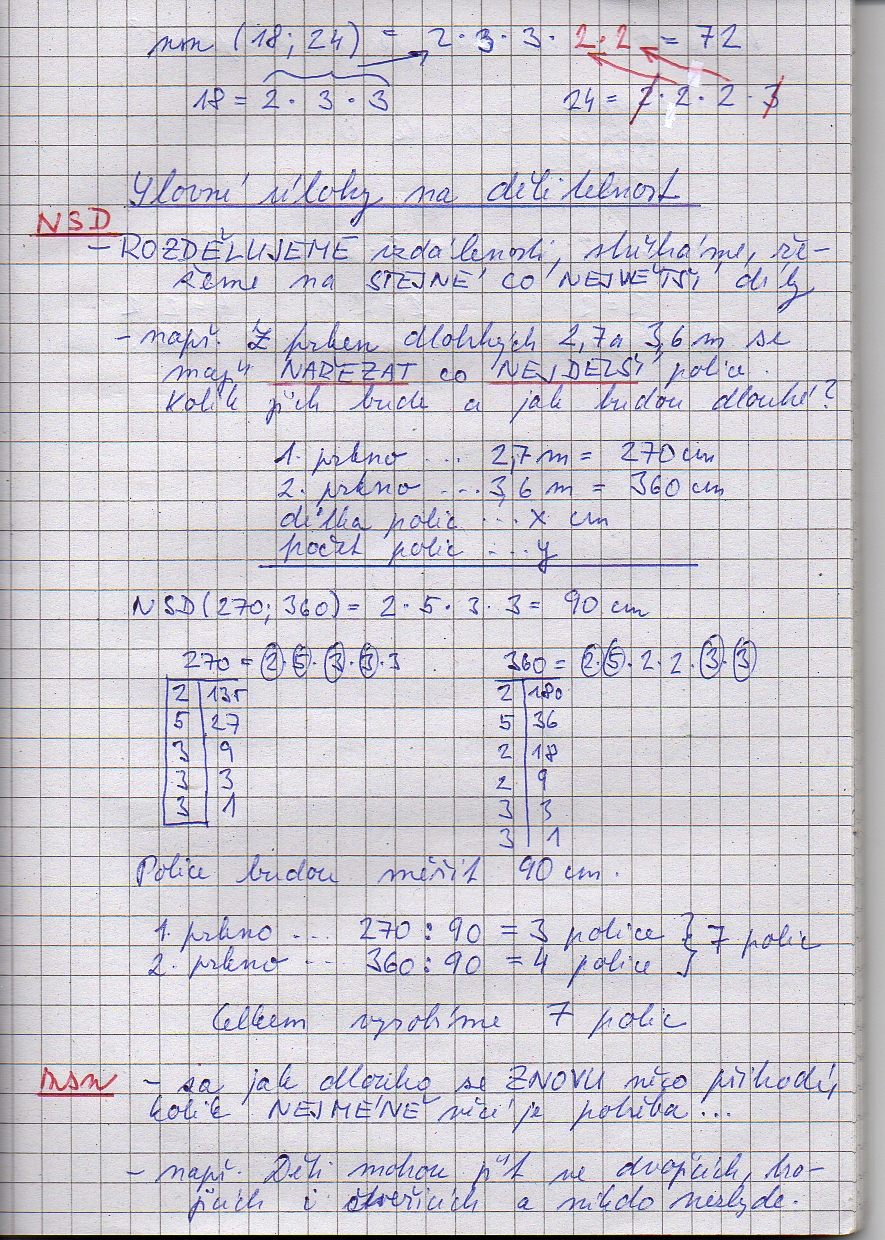 nsn (18; 24) = 2 · 3 · 3 · 2 · 2 = 72
18 = 2 · 3 · 3 24 = 2 · 2 · 2 · 3
Slovní úlohy na dělitelnost
NSD
– ROZDĚLUJEME vzdálenosti, stříháme, ře-
žeme na STEJNÉ CO NEJVĚTŠÍ díly
– např. Z prken dlouhých 2,7 a 3,6 m se
mají NAŘEZAT co NEJDELŠÍ police.
Kolik jich bude a jak budou dlouhé?
1. prkno ... 2,7 m = 270 cm
2. prkno ... 3,6 m = 360 cm
délka polic ... x cm
počet polic ... y
NSD (270; 360) = 2 · 5 · 3 · 3 = 90 cm
270 = 2 · 5 · 3 · 3 · 3 360 = 2 · 5 · 2 · 2 · 3 · 3
2 135 2 180
5 27 5 36
3 9 2 18
3 3 2 9
3 1 3 3
3 1
Police budou měřit 90 cm.
1. prkno ... 270 : 90 = 3 police } 7 polic
2. prkno ... 360 : 90 = 4 police
Celkem vyrobíme 7 polic
nsn – za jak dlouho se ZNOVU něco přihodí,
kolik NEJMÉNĚ věcí je potřeba ...
– např. Děti mohou jít ve dvojicích, tro-
jicích i čtveřicích a nikdo nezbyde.